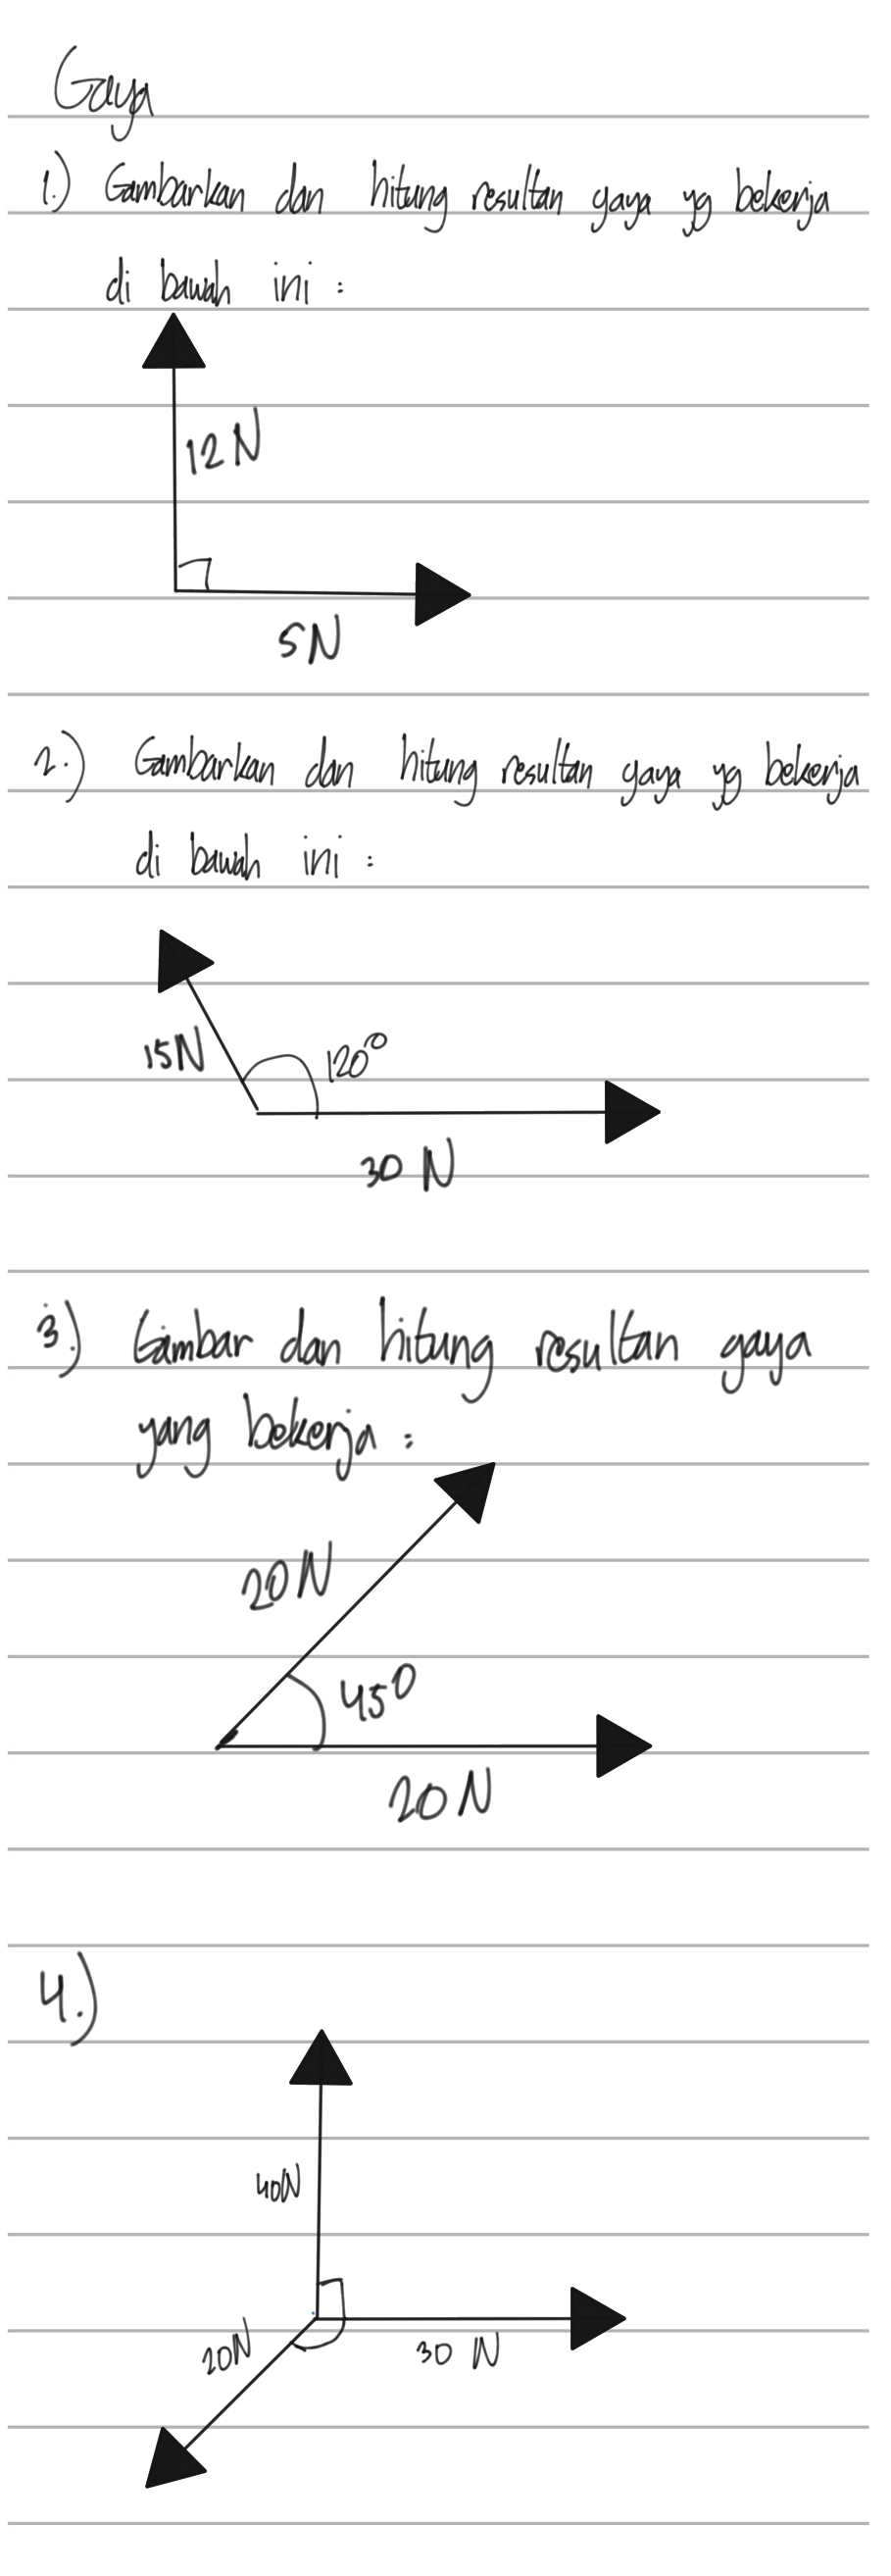 Gaya
1.) Gambarkan dan hitung resultan gaya yg bekerja
di bawah ini :
12 N
5 N
2.) Gambarkan dan hitung resultan gaya yg bekerja
di bawah ini :
15 N
120°
30 N
3.) Gambar dan hitung resultan gaya
yang bekerja :
20 N
45°
20 N
4.)
40N
20N
30 N